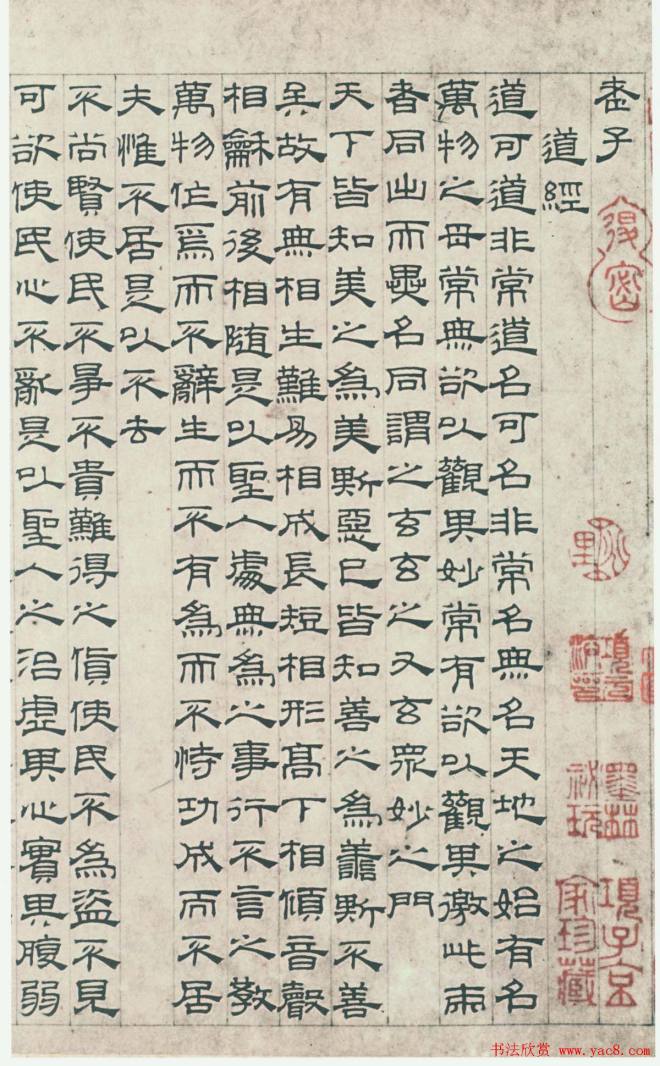 老子
道經
道可道非常道名可名非常名無名天地之始有名
萬物之母常無欲以觀其妙常有欲以觀其徼此兩
者同出而異名同謂之玄玄之又玄眾妙之門
天下皆知美之為美斯惡已皆知善之為善斯不善
矣故有無相生難易相成長短相形高下相傾音聲
相龢前後相隨是以聖人處無為之事行不言之教
萬物作焉而不辭生而不有為而不恃功成而不居
夫惟不居是以不去
不尚賢使民不爭不貴難得之貨使民不為盜不見
可欲使民心不亂是以聖人之治虛其心實其腹弱
墨林祕玩
項子京家珍藏
书法欣赏 www.yac8.com